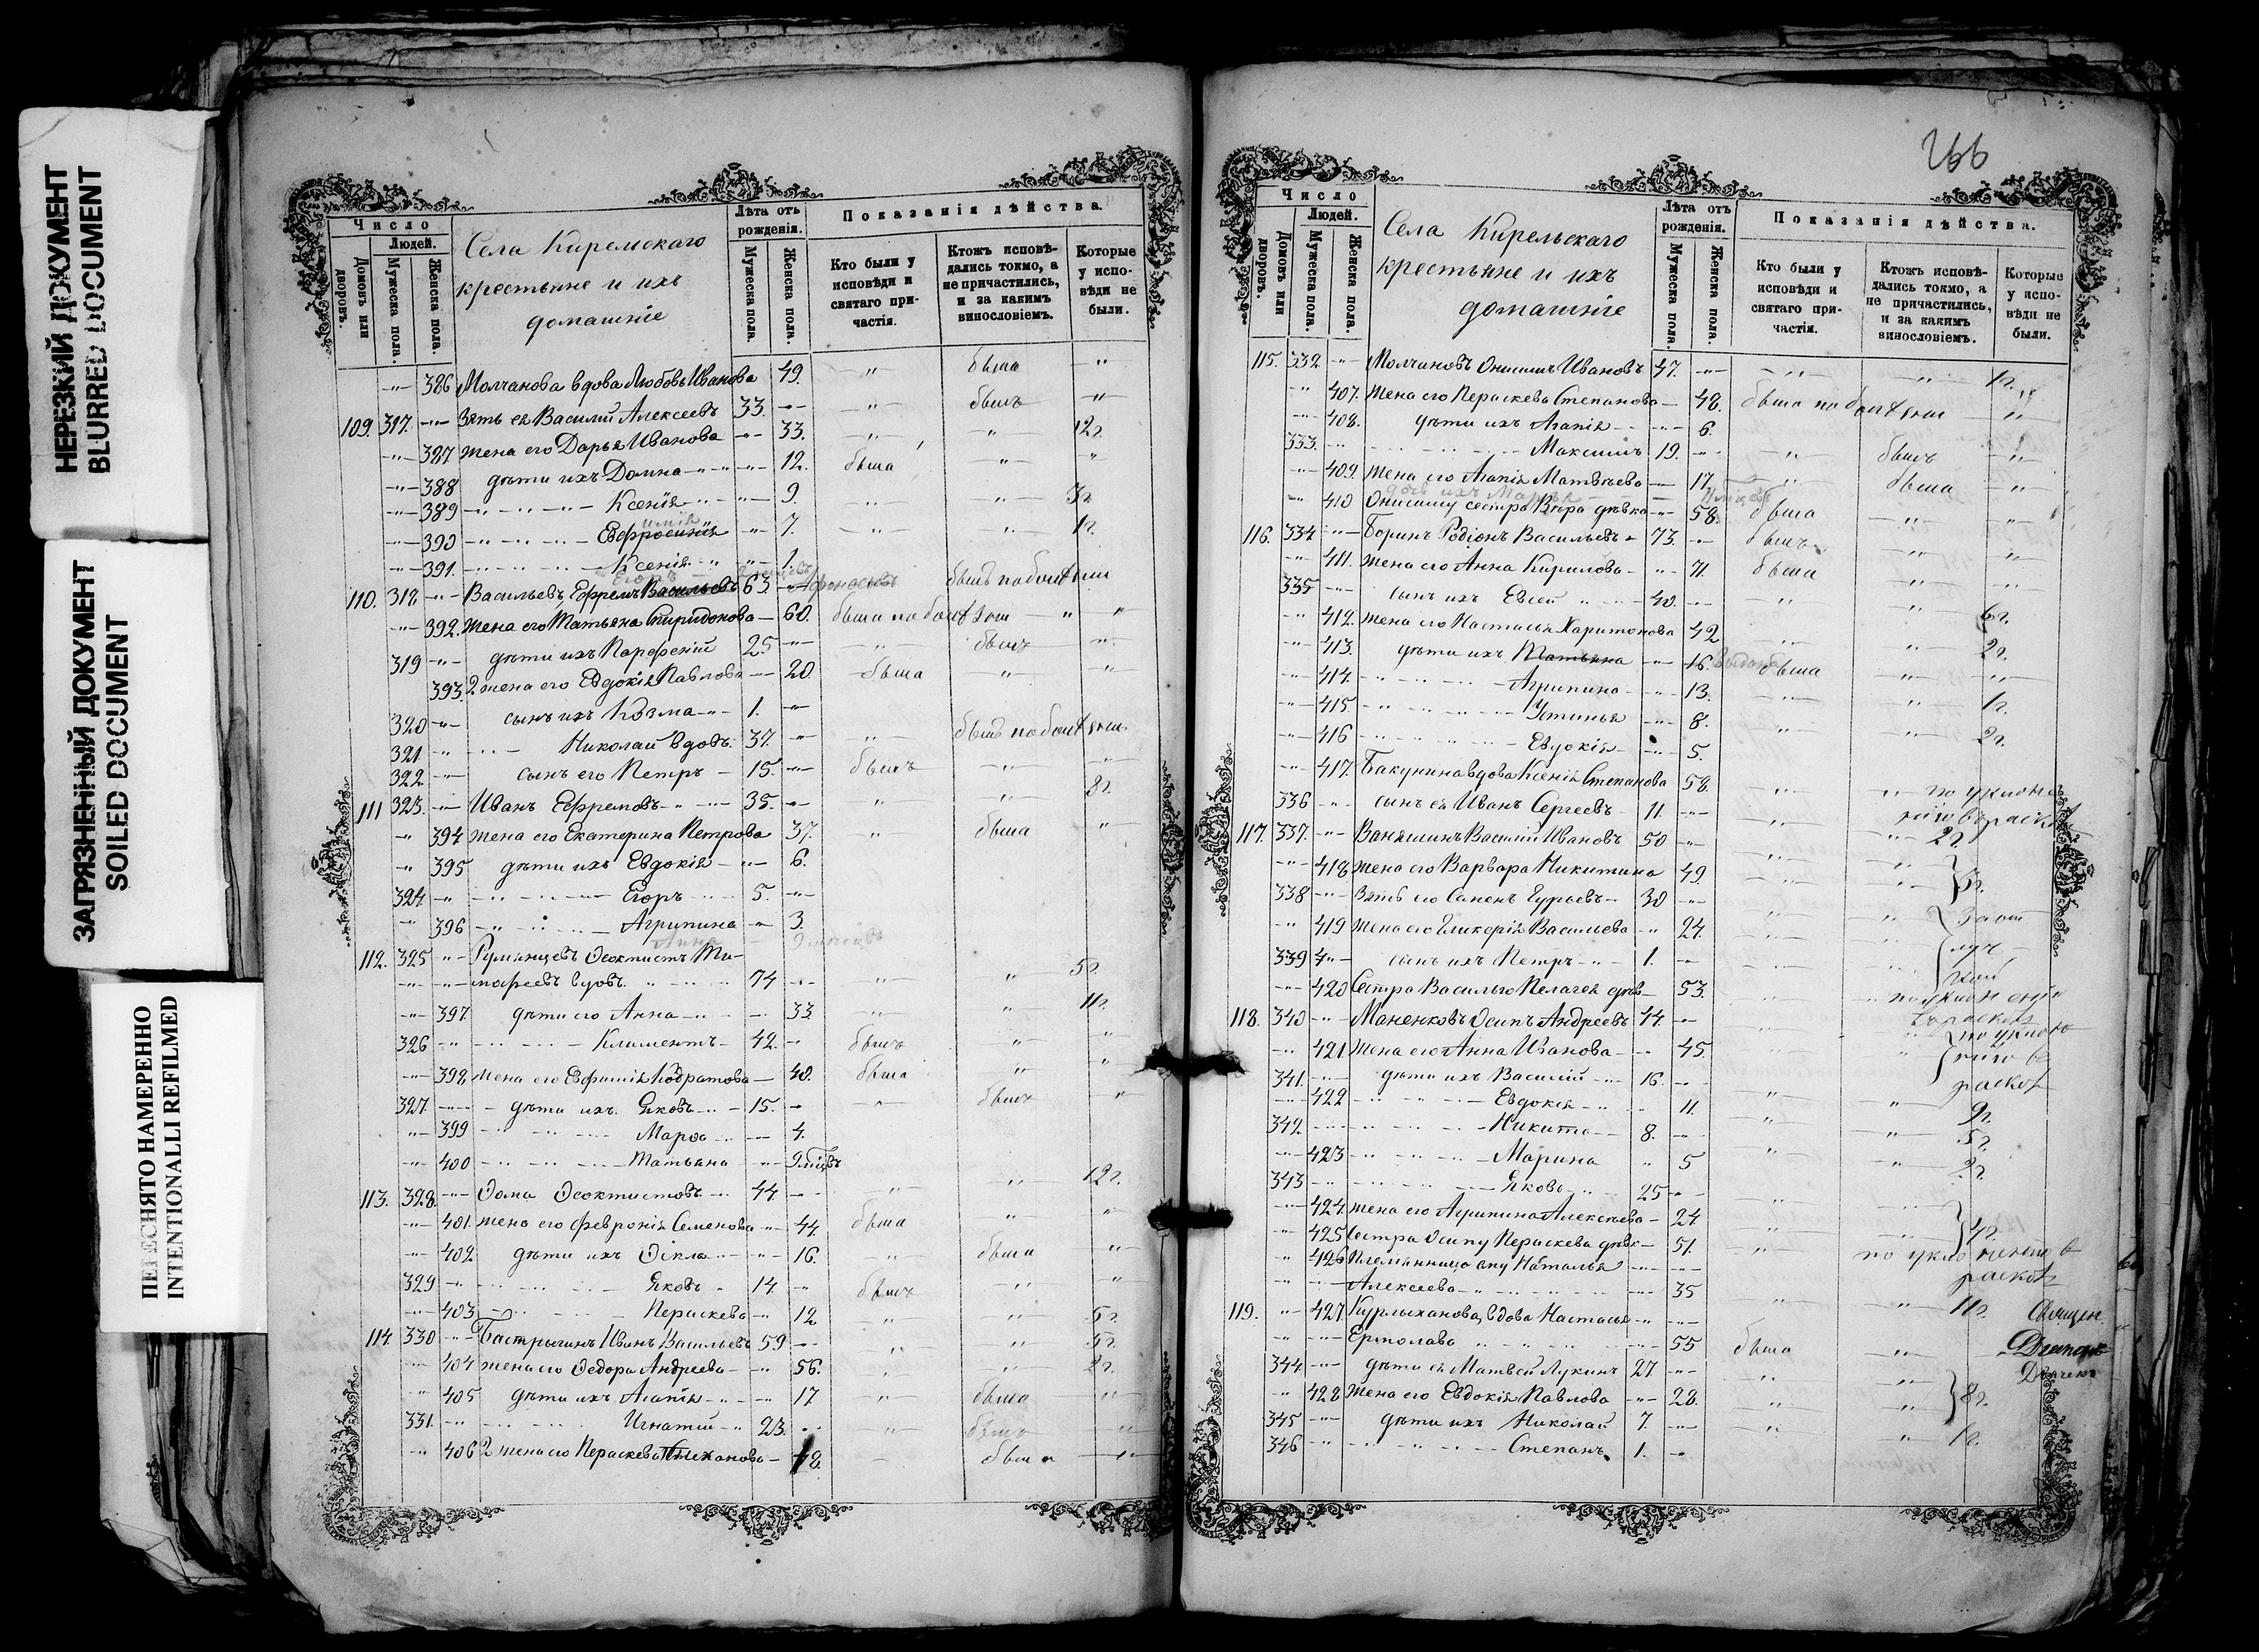 НЕРЕЗКИЙ ДОКУМЕНТ
BLURRED DOCUMENT
ЗАГРЯЗНЕННЫЙ ДОКУМЕНТ
SOILED DOCUMENT
ПЕРЕСНЯТО НАМЕРЕННО
INTENTIONALLI REFILMED
Число
Людей.
Домовъ или дворовъ.
Мужеска пола.
Женска пола.
Села Кирельскаго
крестьяне и ихъ
домашніе
Лѣта отъ рожденія.
Мужеска пола.
Женска пола.
Показанія дѣйства.
Кто были у исповѣди и святаго причастія.
Ктожъ исповѣдались токмо, а не причастились, и за какимъ винословіемъ.
Которые у исповѣди не были.
386 Молчанова вдова Любовь Иванова 49. " была "
109. 317. Зять ея Василій Алексеевъ 33. " былъ "
387 жена его Дарья Иванова 33. " " 12г.
388 дѣти ихъ Домна 12. была " "
389 Ксенія 9. " " 3г.
390 7. " " 1г.
391. Ксенія 1.
110. 318 Васильевъ Ефремъ Васильевъ 63.
392. жена его Татьяна Спиридонова 60. была " "
319 дѣти ихъ Парфеній 25 " былъ "
393. 2 жена его Евдокія Павлова 20. была " "
320 сынъ ихъ Козма 1.
321 Николай вдовъ. 37. "
322 сынъ его Петръ 15. былъ " "
111 323. Иванъ Ефремовъ 35. " " 8г.
394 жена его Екатерина Петрова 37. " была "
395 дѣти ихъ Евдокія 6.
324. Егоръ 5.
396 Агрипина 3.
112. 325 Румянцевъ Ѳеоктистъ Ти-
мофеевъ вдовъ. 74 " " 5г.
397. дѣти его Анна 33. " " 11г.
326 Климентъ 42. былъ " "
398 жена его Евфимія Кодратова 40. была " "
327. дѣти ихъ. Яковъ 15. " былъ "
399 Марѳа 4.
400 Татьяна
113. 328. Ѳома Ѳеоктистовъ 44 " " 12г.
401. жена его Февронія Семенова 44. была " "
402. дѣти ихъ Ѳекла 16. " была "
329 Яковъ 14 былъ " "
403 Параскева 12 " " 5г.
114. 330 Бастрыгинъ Иванъ Васильевъ 59 " " 5г.
404 жена его Ѳедора Андреева 56. " " 2г.
405 дѣти ихъ Агапія 17 " была "
331. Игнатій 23. " былъ "
406 2 жена его Параскева 18. была "
266
Число
Людей.
Домовъ или дворовъ.
Мужеска пола.
Женска пола.
Села Кирельскаго
крестьяне и ихъ
домашніе
Лѣта отъ рожденія.
Мужеска пола.
Женска пола.
Показанія дѣйства.
Кто были у исповѣди и святаго причастія.
Ктожъ исповѣдались токмо, а не причастились, и за какимъ винословіемъ.
Которые у исповѣди не были.
115. 332 Молчановъ Онисимъ Ивановъ 47. " " 1г.
407. жена его Параскева Степанова 48. была "
408. дѣти ихъ Агапія 6.
333. Максимъ 19. " былъ "
409. жена его Агапія Матвѣева 17. " была "
410 Онисиму сестра Вѣра дѣвка 58. была " "
116. 334 Боринъ Родіонъ Васильевъ 73. былъ " "
411. жена его Анна Кирилова 71. была " "
335 сынъ ихъ Евсей 40. " " 6г.
412. жена его Настасья Харитонова 42 " " 2г.
413. дѣти ихъ Татьяна 16. была " "
414. Агрипина 13. " " 1г.
415 Устинья 8. " " 2г.
416 Евдокія 5.
417. Бакунина вдова Ксенія Степанова 58.
336 сынъ ея Иванъ Сергеевъ 11. " " 2г.
117. 337. Ваняшинъ Василій Ивановъ 50
418 жена его Варвара Никитина 49.
338 Зять его Семенъ Гурьевъ 30
419 жена его Гликерія Васильева 24.
339 сынъ ихъ Петръ 1.
420 Сестра Василью Пелагея дѣв. 53.
118. 340 Маненковъ Осипъ Андреевъ 44.
421. жена его Анна Иванова 45.
341. дѣти ихъ Василій 16. " " 9г.
422 Евдокія 11. " " 5г.
342 Никита 8. " " 2г.
423 Марина 5
343 Яковъ 25
424. жена его Агрипина Алексеева 24 4г.
425 Сестра Осипу Параскева дѣвк 51.
426 Племянница ему Наталья
Алексеева 35 " " 11г.
119. 427. Курлыханова вдова Настасья
Ермолаева 55 была "
344. дѣти ея Матвей Лукинъ 27.
428 жена его Евдокія Павлова 28. 8г.
345 дѣти ихъ Николай 7. " " 1г.
346 Степанъ 1.
Священ.